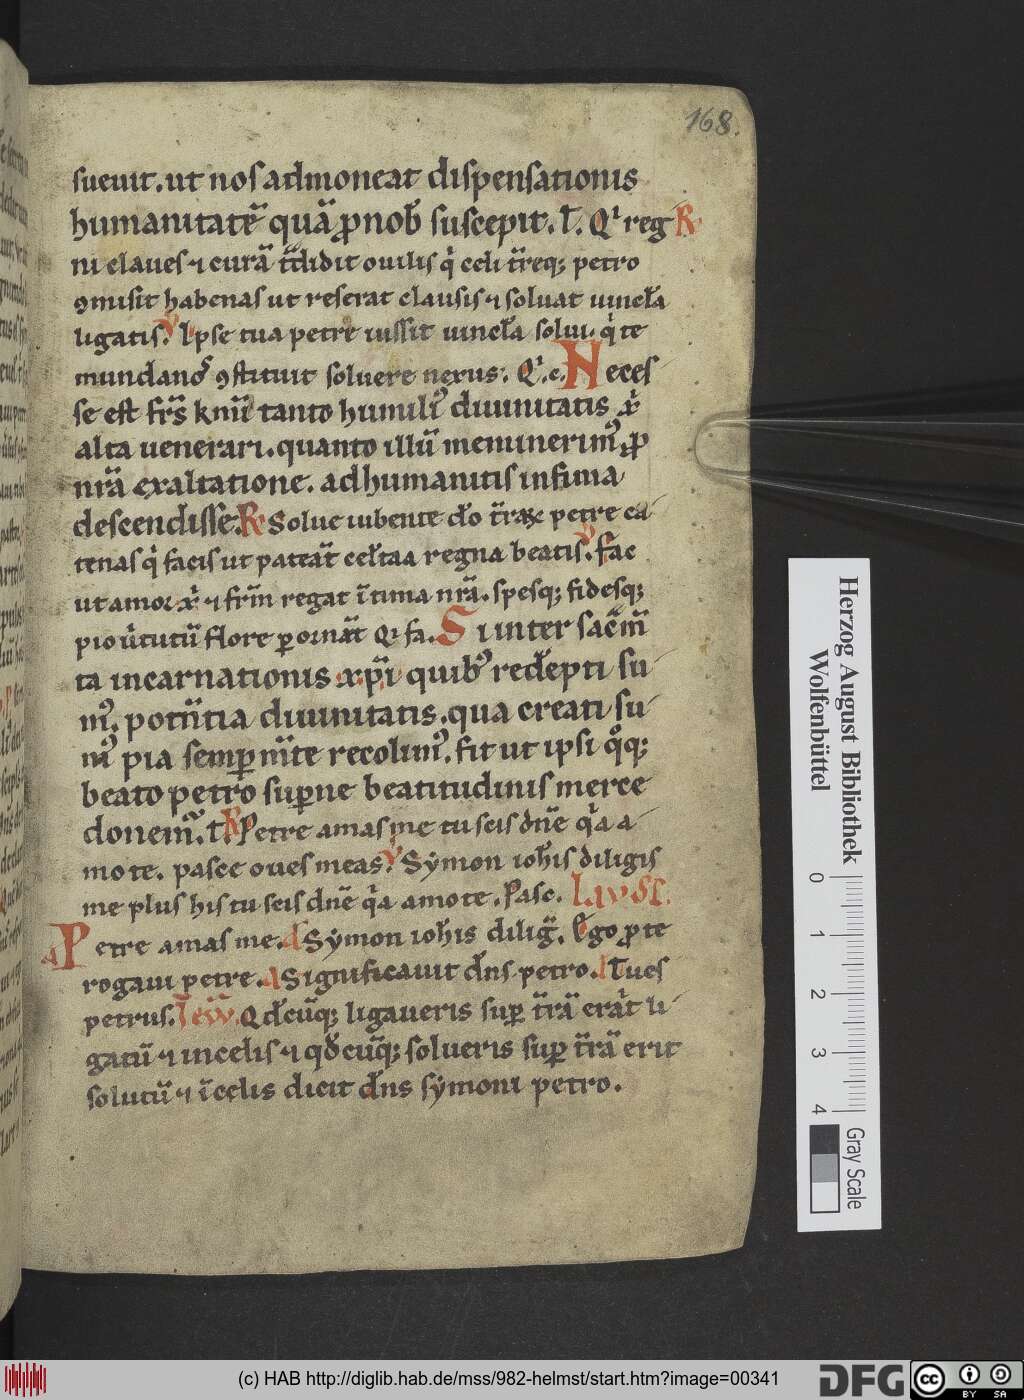 168.
sueuit. ut nos admoneat dispensationis
humanitatē quā ꝓ nob̄ suscepit. t̄. Qͥ reg R
ni claues ⁊ curā t̄didit ouilis qͥ celi t̄req; petro
ꝯmisit habenas ut reserat clausis ⁊ soluat uincła
ligatis. V Ipse tua petre iussit uincła solui. qͥ te
mundanoſ ꝯstituit soluere nexus. Qͥ. c. Neces
se est frs̄ kmī tanto humiliꝰ diuinitatis xͥ
alta uenerari. quanto illū meminerimꝰ ꝓ
nrā exaltatione. ad humanitis infima
descendisse. R Solue iubente dō t̄raꝝ petre ca-
tenas qͥ facis ut pateāt celt̄aa regna beatis. V Fac
ut amor xͥ ⁊ frm̄ regat ītima nrā. spesq; fidesq;
pio ūtutū flore ꝑornāt Qͥ fa. Si inter sac̄m̄
ta incarnationis xp̄i quibꝰ redēpti su-
mꝰ. potn̄tia diuinitatis. qua creati su-
mꝰ pia semꝑ mn̄te recolimꝰ. fit ut ipsi qͦq;
beato petro suꝑne beatitudinis merce
donemꝰ. t. R Petre amas me tu scis dn̄e qͥa a-
mo te. pasce oues meas. V Symon ioh̄is diligis
me plus his tu scis dn̄e qͥa amo te. Pasc. In laudꝰ.
a Petre amas me. a Symon iohis diliḡ. Ego ꝓ te
rogaui petre. a Significauit dn̄s petro. a Tu es
petrus. I eūū. Qd̄cūq; ligaueris suꝑ t̄rā erāt li-
gatū ⁊ in celis ⁊ qd̄cūq; solueris suꝑ t̄rā erit
solutū ⁊ ī cęlis dicit dn̄s symoni petro.
Herzog August Bibliothek
Wolfenbüttel
0 1 2 3 4
Gray Scale
(c) HAB http://diglib.hab.de/mss/982-helmst/start.htm?image=00341
DFG
cc BY SA